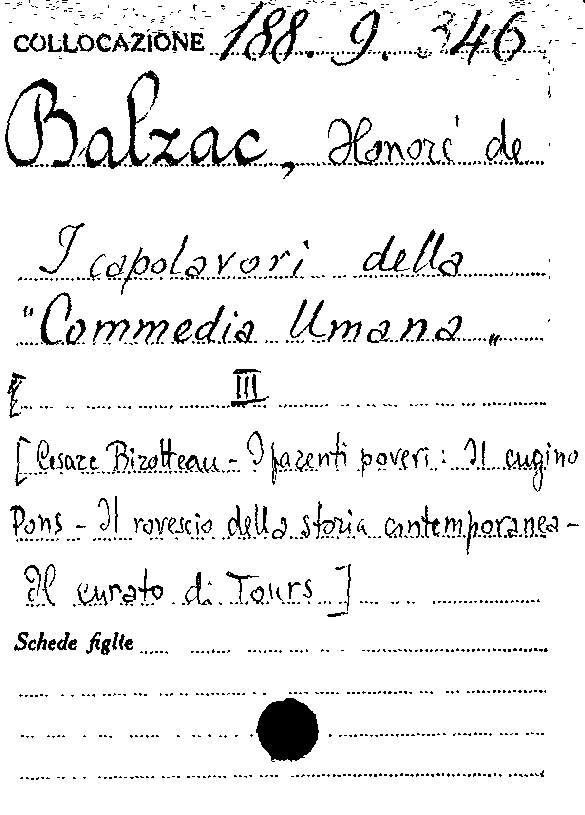 COLLOCAZIONE 188. 9. 346
Balzac, Honoré de
I capolavori della
"Commedia Umana„
III
[Cesare Birotteau - I parenti poveri: Il cugino
Pons - Il rovescio della storia contemporanea -
Il curato di Tours]
Schede figlie